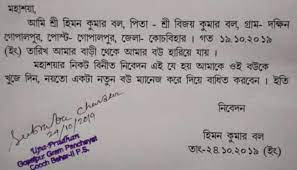 মহাশয়া,
আমি শ্রী হিমন কুমার বল, পিতা - শ্রী বিজয় কুমার বল, গ্রাম- দক্ষিন
গোপালপুর, পোস্ট- গোপালপুর, জেলা- কোচবিহার। গত ১৯.১০.২০১৯
(ইং) তারিখ আমার বাড়ী থেকে আমার বউ হারিয়ে যায়।
মহাশয়ার নিকট বিনীত নিবেদন এই যে হয় আমাকে ওই বউকে
খুজে দিন, নয়তো একটা নতুন বউ ম্যানেজ করে দিয়ে বাধিত করবেন। ইতি
নিবেদন
24/10/2019
Upa-Pradhan
Gopalpur Gram Panchayat
Cooch Behar-II P.S.
হিমন কুমার বল
তাং-২৪.১০.২০১৯ (ইং)